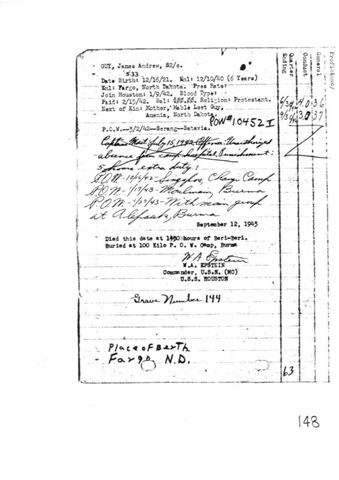 GUY, James Andrew, S2/c.
5'33
Date Birth: 12/16/21. Enl: 12/10/40 (6 Years)
Enl: Fargo, North Dakota. Pres Rate:
Join Houston: 1/9/42. Blood Type: -
Paid: 2/15/42. Bal: Religion: Protestant.
Next of Kin: Mother, Mable Lost Guy,
Amenia, North Dakota
POW#10452 I
P.O.W.--3/2/42--Serang--Batavia.
Captain Mast July 15, 1942 Offense: Unauthorized
absence from camp hospital, Punishment:
5 hours extra duty:
P.O.W. Changi Camp
P.O.W. Moulmein, Burma
P.O.W. With main group
at Burma
September 12, 1943
Died this date at hours of Beri-Beri.
Buried at 100 Kilo P. O. W. Camp, Burma
W A Epstein
W.A. EPSTEIN
Commander, U.S.N. (MC)
U.S.S. HOUSTON
Grave Number 144
Place of Berth
Fargo N.D.
Quarter
Ending
Conduct
General
63
148